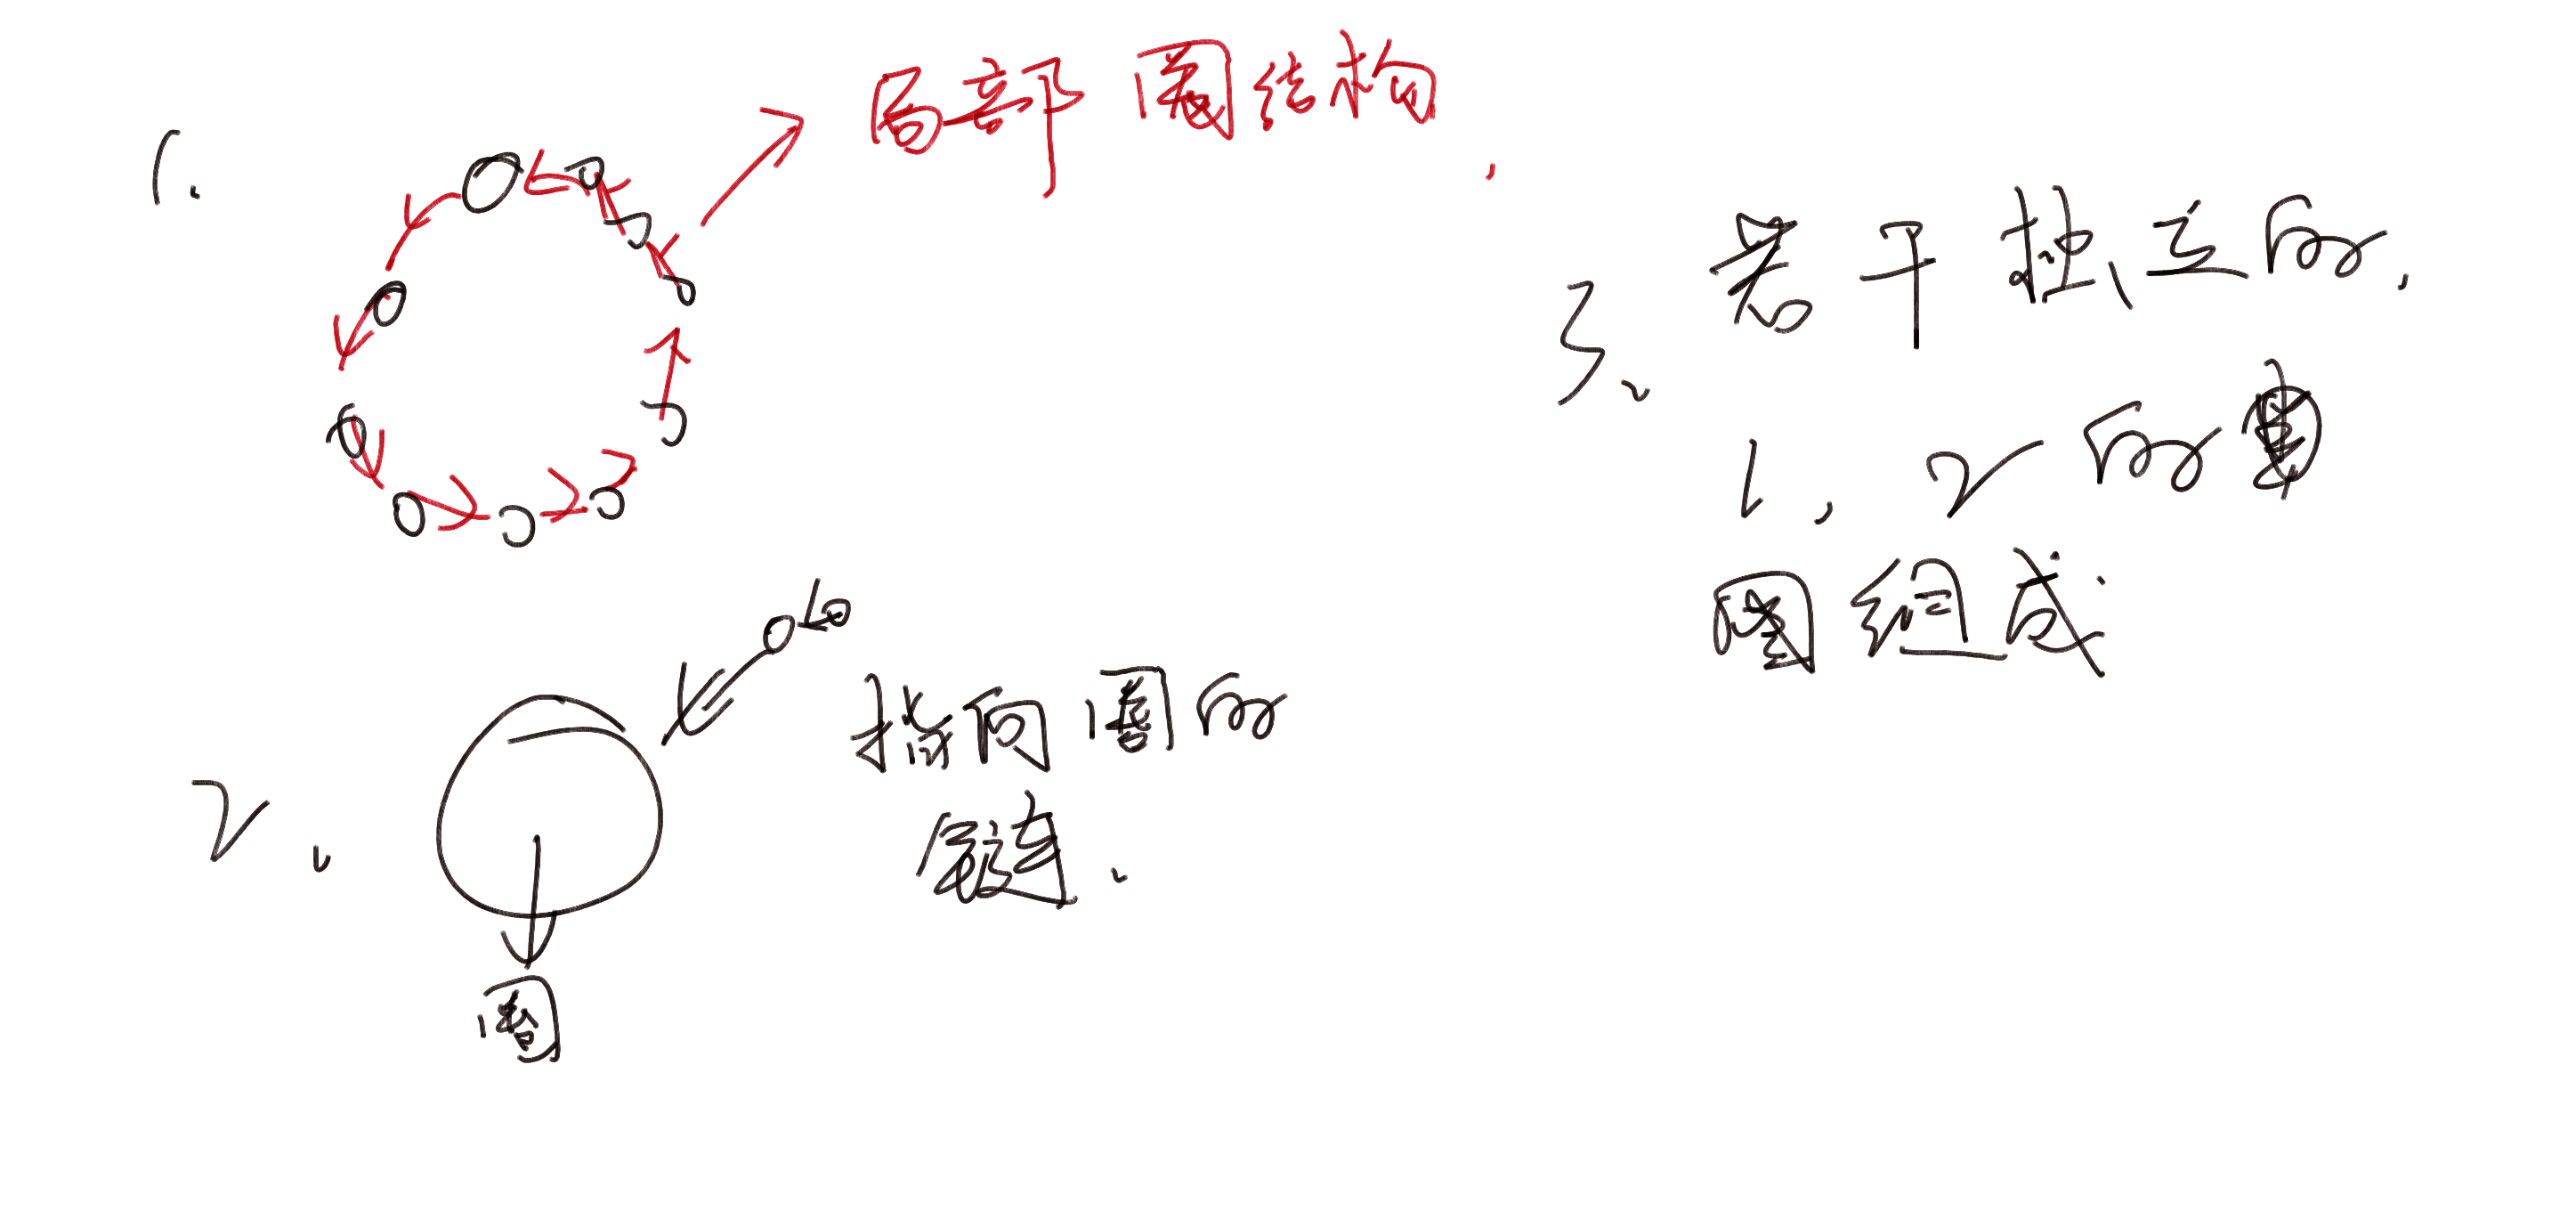 1.
局部 圈结构.
2.
指向圈的
链.
圈
3.
若干独立的,
1, 2 的
圈组成